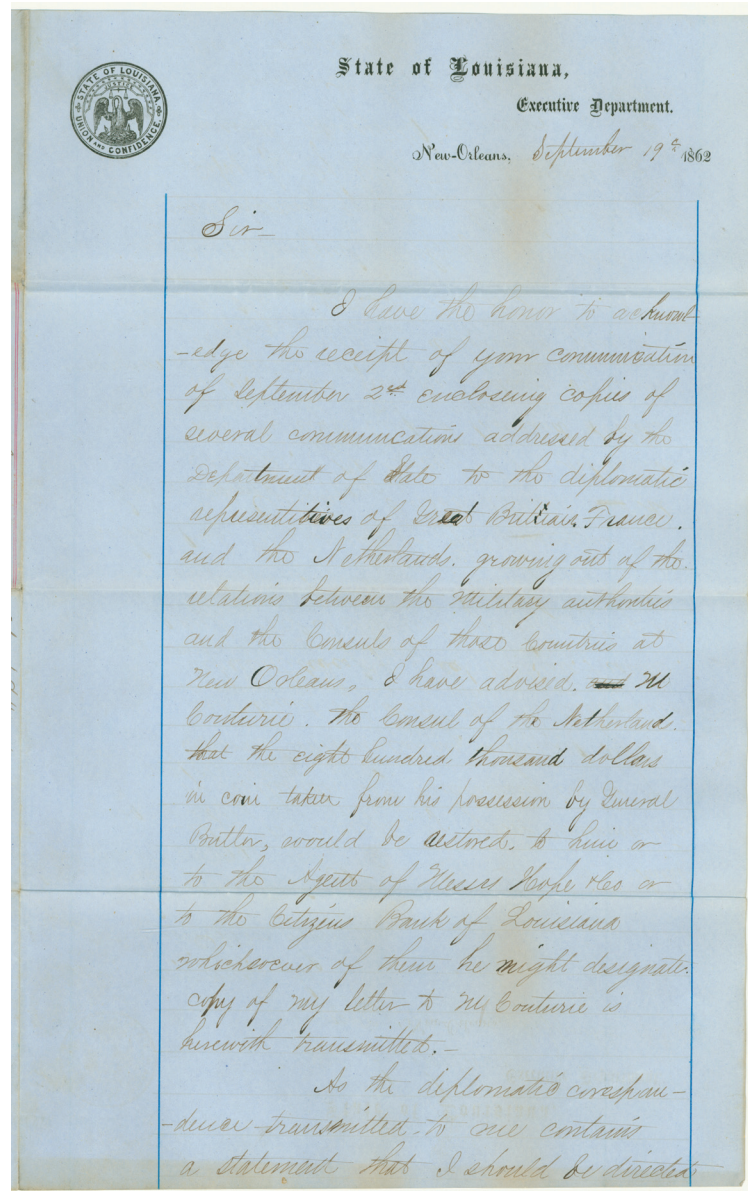 STATE OF LOUISIANA.
JUSTICE
UNION AND CONFIDENCE.
State of Louisiana,
Executive Department.
New-Orleans, September 19th 1862
Sir—
I have the honor to acknowl-
-edge the receipt of your communication
of September 2nd enclosing copies of
several communications addressed by the
Department of State to the diplomatic
representitives of Great Britain. France.
and the Netherlands. growing out of the
relations between the Military authorities
and the Consuls of those Countries at
New Orleans. I have advised. and M
Couturié. the Consul of the Netherland.
that the eight hundred thousand dollars
in coin taken from his possession by General
Butler, would be restored. to him or
to the Agent of Messrs Hope & Co or
to the Citizens Bank of Louisiana
whichsoever of them he might designate.
copy of my letter to M Couturie is
herewith transmitted.—
As the diplomatic correspon-
-dence transmitted to me contains
a statement that I should be directed